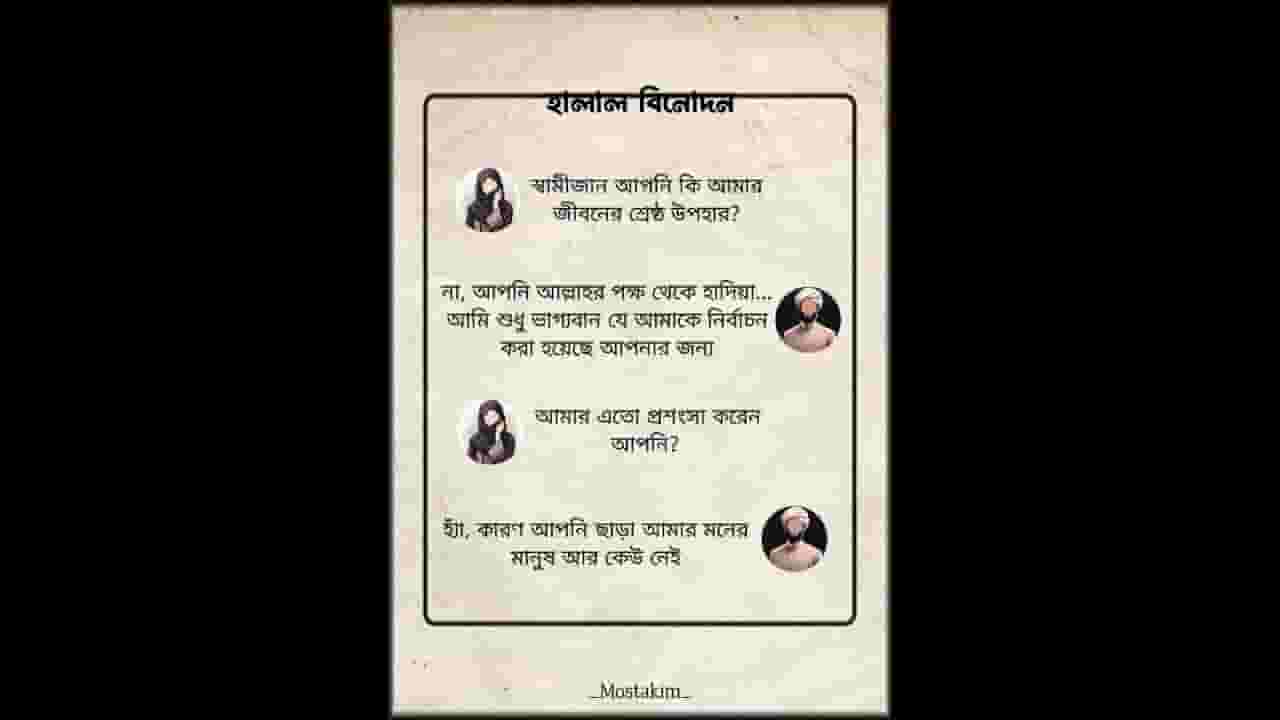 হালাল বিনোদন
স্বামীজান আপনি কি আমার
জীবনের শ্রেষ্ঠ উপহার?
না, আপনি আল্লাহর পক্ষ থেকে হাদিয়া...
আমি শুধু ভাগ্যবান যে আমাকে নির্বাচন
করা হয়েছে আপনার জন্য
আমার এতো প্রশংসা করেন
আপনি?
হ্যাঁ, কারণ আপনি ছাড়া আমার মনের
মানুষ আর কেউ নেই
_Mostakim_